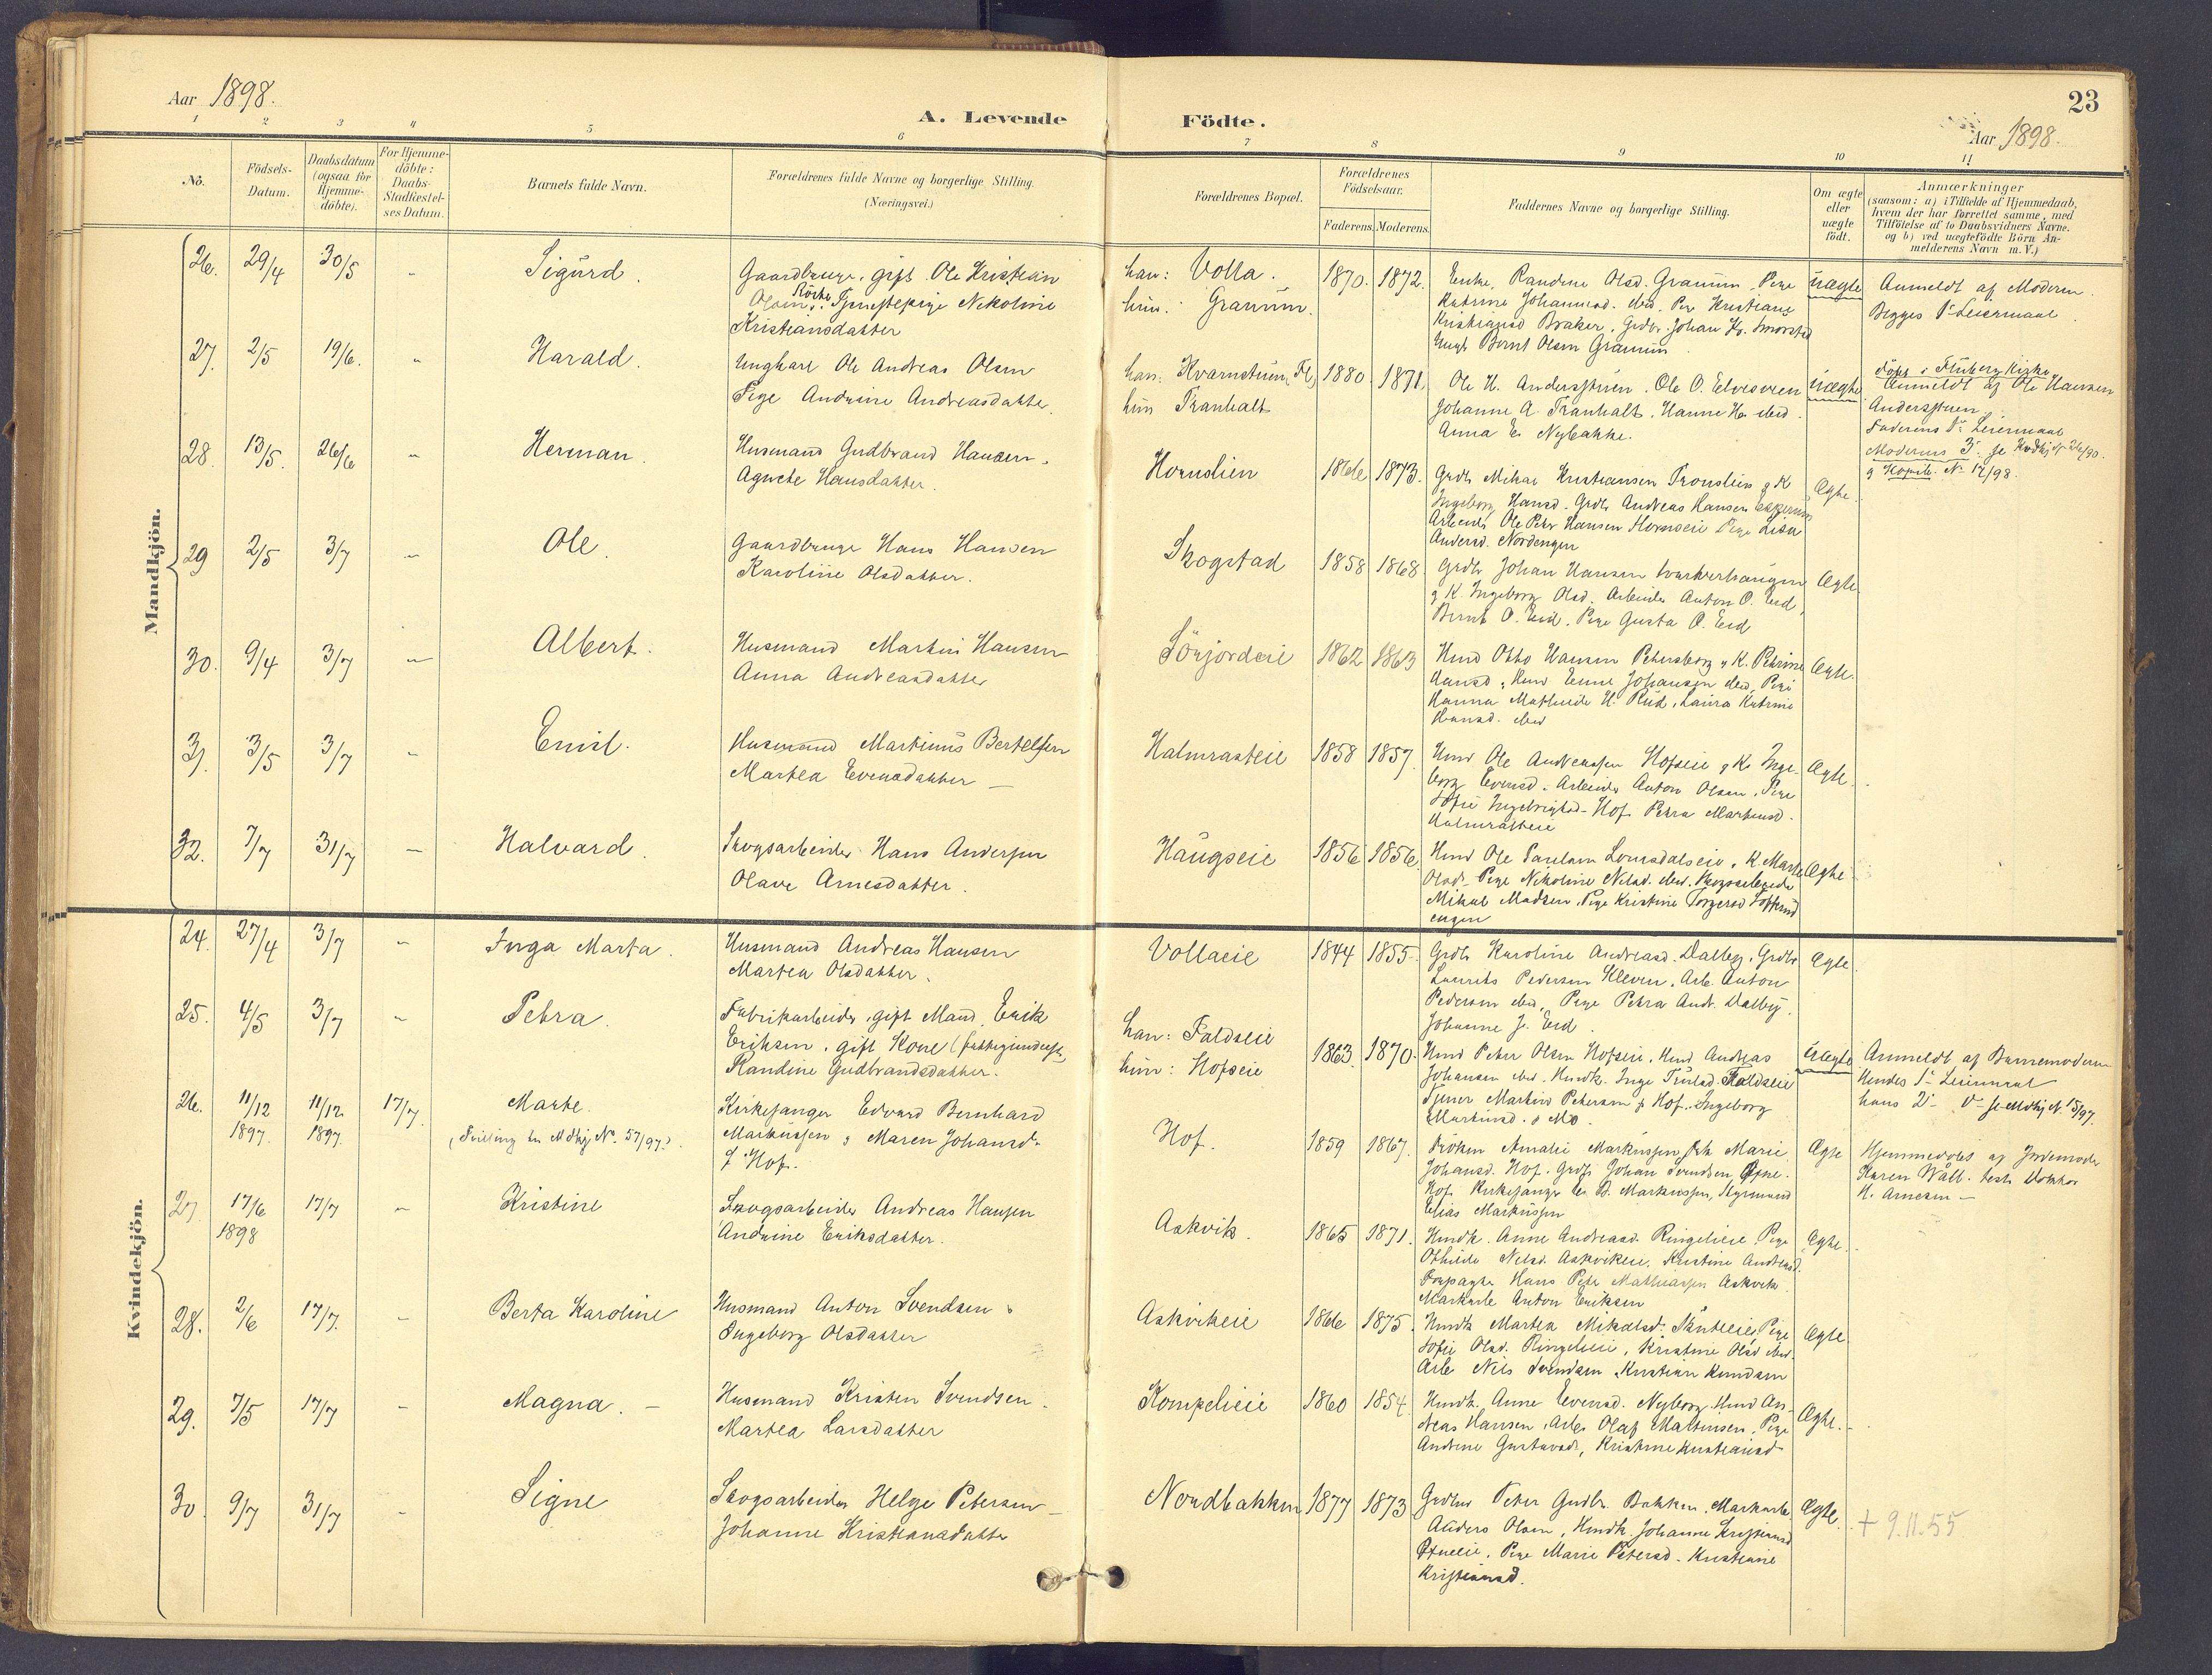 23
Aar 1898.
A. Levende Födte.
Aar 1898.
1 2 3 4 5 6 7 8 9 10 11
No.
Födsels-Datum.
Daabsdatum (ogsaa för Hjemme-döbte).
For Hjemme-döbte: Daabs-Stadfæstel-ses Datum.
Barnets fulde Navn.
Forældrenes fulde Navne og borgerlige Stilling.
(Næringsvei.)
Forældrenes Bopæl.
Forældrenes Födselsaar.
Faderens. Moderens.
Faddernes Navne og borgerlige Stilling.
Om ægte eller uægte födt.
Anmærkninger
(saasom: a) i Tilfælde af Hjemmedaab,
hvem der har forrettet samme, med
Tilföielse af to Daabsvidners Navne.
og b) ved uægtefödte Börn An-
melderens Navn m.V.)
Mandkjön.
26. 29/4 30/5 - Sigurd.
Gaardbruger, gift Ole Kristian
Olsen, Tjenestepige Nikoline
Kristiansdatter
han: Volla.
hun: Granum.
1870. 1872.
Enke Randine Olsd. Granum, Pige
Katrine Johannesd. ibid, Pige Kristiane
Kristiansd Braker, Grdbr. Johan Kr. Smorstad
Ungk Bernt Olsen Granum
uægte
Anmeldt af Moderen.
Begges 1ste Leiermaal.
27. 2/5 19/6. - Harald.
Ungkarl Ole Andreas Olsen
Pige Andrine Andreasdatter
han: Kvarnstuen, Fl.
hun Tranhalt
1880 1871
Ole H. Andersstuen. Ole O. Elvesveen
Johanne A. Tranhalt, Hanne H. ibid.
Anna E. Nybakke.
uægte
döbt i Fluberg Kirke
Anmeldt af Ole Hansen
Andersstuen.
Faderens 1ste Leiermaal
Moderens 3.
28. 13/5. 26/6 - Herman.
Husmand Gudbrand Hansen.
Agnete Hansdatter.
Hornslien
1866 1873.
Grdbr Mikal Kristiansen Tronslien og K
Ingeborg Hansd. Grdbr Andreas Hansen
Arbeider Ole Peter Hansen Hornseie Pige Lisa
Andersd. Nordengen
Ægte.
29 2/5 3/7 - Ole.
Gaardbruger Hans Hansen
Karoline Olsdatter.
Skogstad
1858 1868
Grdbr Johan Hansen
og K. Ingeborg Olsd. Arbeider Anton O. Eid,
Bernt O. Eid, Pige Gusta O. Eid
Ægte
30. 9/4 3/7 - Albert.
Husmand Martin Hansen
Anna Andreasdatter
Sörjordeie
1862 1863
Hmd Otto Hansen Petersborg og K. Petrine
Hansd, Hmd Enne Johansen ibid, Pige
Hanna Mathilde H. Rud, Laura Katrine
Hansd. ibid
Ægte.
31. 3/5 3/7 - Emil.
Husmand Martinus Bertelsen
Martea Evensdatter -
Halmrasteie
1858 1857.
Hmd Ole Andreassen Hofseie og K. Inge-
borg Evensd. Arbeider Anton Olsen, Pige
Sofie Hof. Petra Martinsd.
Halmrasteie
Ægte.
32. 7/7 31/7 - Halvard.
Skogsarbeider Hans Andersen
Olave Arnesdatter.
Haugseie
1856 1856
Hmd Ole Paulsen, K. Marte
Olsd. Pige Nikoline Nilsd. ibid. Skogsarbeider
Mikal Madsen, Pige Kristine Torgersd
engen
Ægte
Kvindekjön.
24. 27/4 3/7 - Inga Marta.
Husmand Andreas Hansen
Martea Olsdatter.
Vollaeie
1844 1855
Grdbr Karoline Andreasd. Dalby, Grdbr
Laurits Pedersen Kleven, Arb. Anton
Pedersen ibid, Pige Petra Andr. Dalby.
Johanne J. Eid.
Ægte
25. 4/5 3/7 - Petra.
Fabrikarbeider, gift Mand, Erik
Eriksen, gift Kone
Randine Gudbrandsdatter.
han: Faldseie
hun: Hofseie
1863. 1870.
Hmd Peter Olsen Hofseie, Hmd Andreas
Johansen ibid. Hmdk. Inge Trulsd. Faldseie
Tjener Martin Petersen Hof. Ingeborg
Martinsd. Mo.
uægte
Anmeldt af Barnemoderen
Hendes 1ste Leiermaal
hans 2. se Mdkj N. 15/97.
26. 11/12 1897. 11/12. 1897. 17/7. Marte.
(Tvilling til Mdkj No. 57/97).
Kirkesanger Edvard Bernhard
Markussen og Maren Johansd.
Hof.
Hof.
1859 1867.
Fröken Amalie Markussen, Frk Marie
Johansd. Hof. Grdbr Johan Svendsen
Hof. Kirkesanger E. B. Markussen, Styrmand
Elias Markussen
Ægte
Hjemmedöbt af Jordemoder
Karen Wall. test. Doktor
H. Arnesen -
27. 17/6 1898 17/7 - Kristine
Skogsarbeider Andreas Hansen
Andrine Eriksdatter.
Askvik.
1865 1871.
Hmdk. Anne Andreasd. Ringelieie Pige
Othilde Nilsd. Askvikeie, Kristine Andreasd.
Hans Peter Mathiassen Askvik
Anton Eriksen
Ægte.
28. 2/6 17/7. - Berta Karoline
Husmand Anton Svendsen og
Ingeborg Olsdatter
Askvikeie
1866 1875.
Hmdk Martea Mikalsd., Pige
Sofie Olsd. Ringelieie, Kristine Olsd ibid.
Arb Nils Svendsen, Kristian
Ægte
29. 7/5 17/7 - Magna. -
Husmand Kristen Svendsen.
Martea Larsdatter
Kompelieie
1860 1854
Hmdk. Anne Evensd. Nyborg. Hmd An-
dreas Hansen, Arb. Olaf Martinsen, Pige
Andrine Gustavsd., Kristine Kristiansd
Ægte.
30. 9/7 31/7 - Signe
Skogsarbeider Helge Petersen -
Johanne Kristiansdatter
Nordbakken
1877 1873
Peter Gudbr. Bakken,
Anders Olsen, Hmdk. Johanne Kristiansd
Pige Marie Petersd. Kristiane
Kristiansd.
Ægte.
+ 9.11.55.